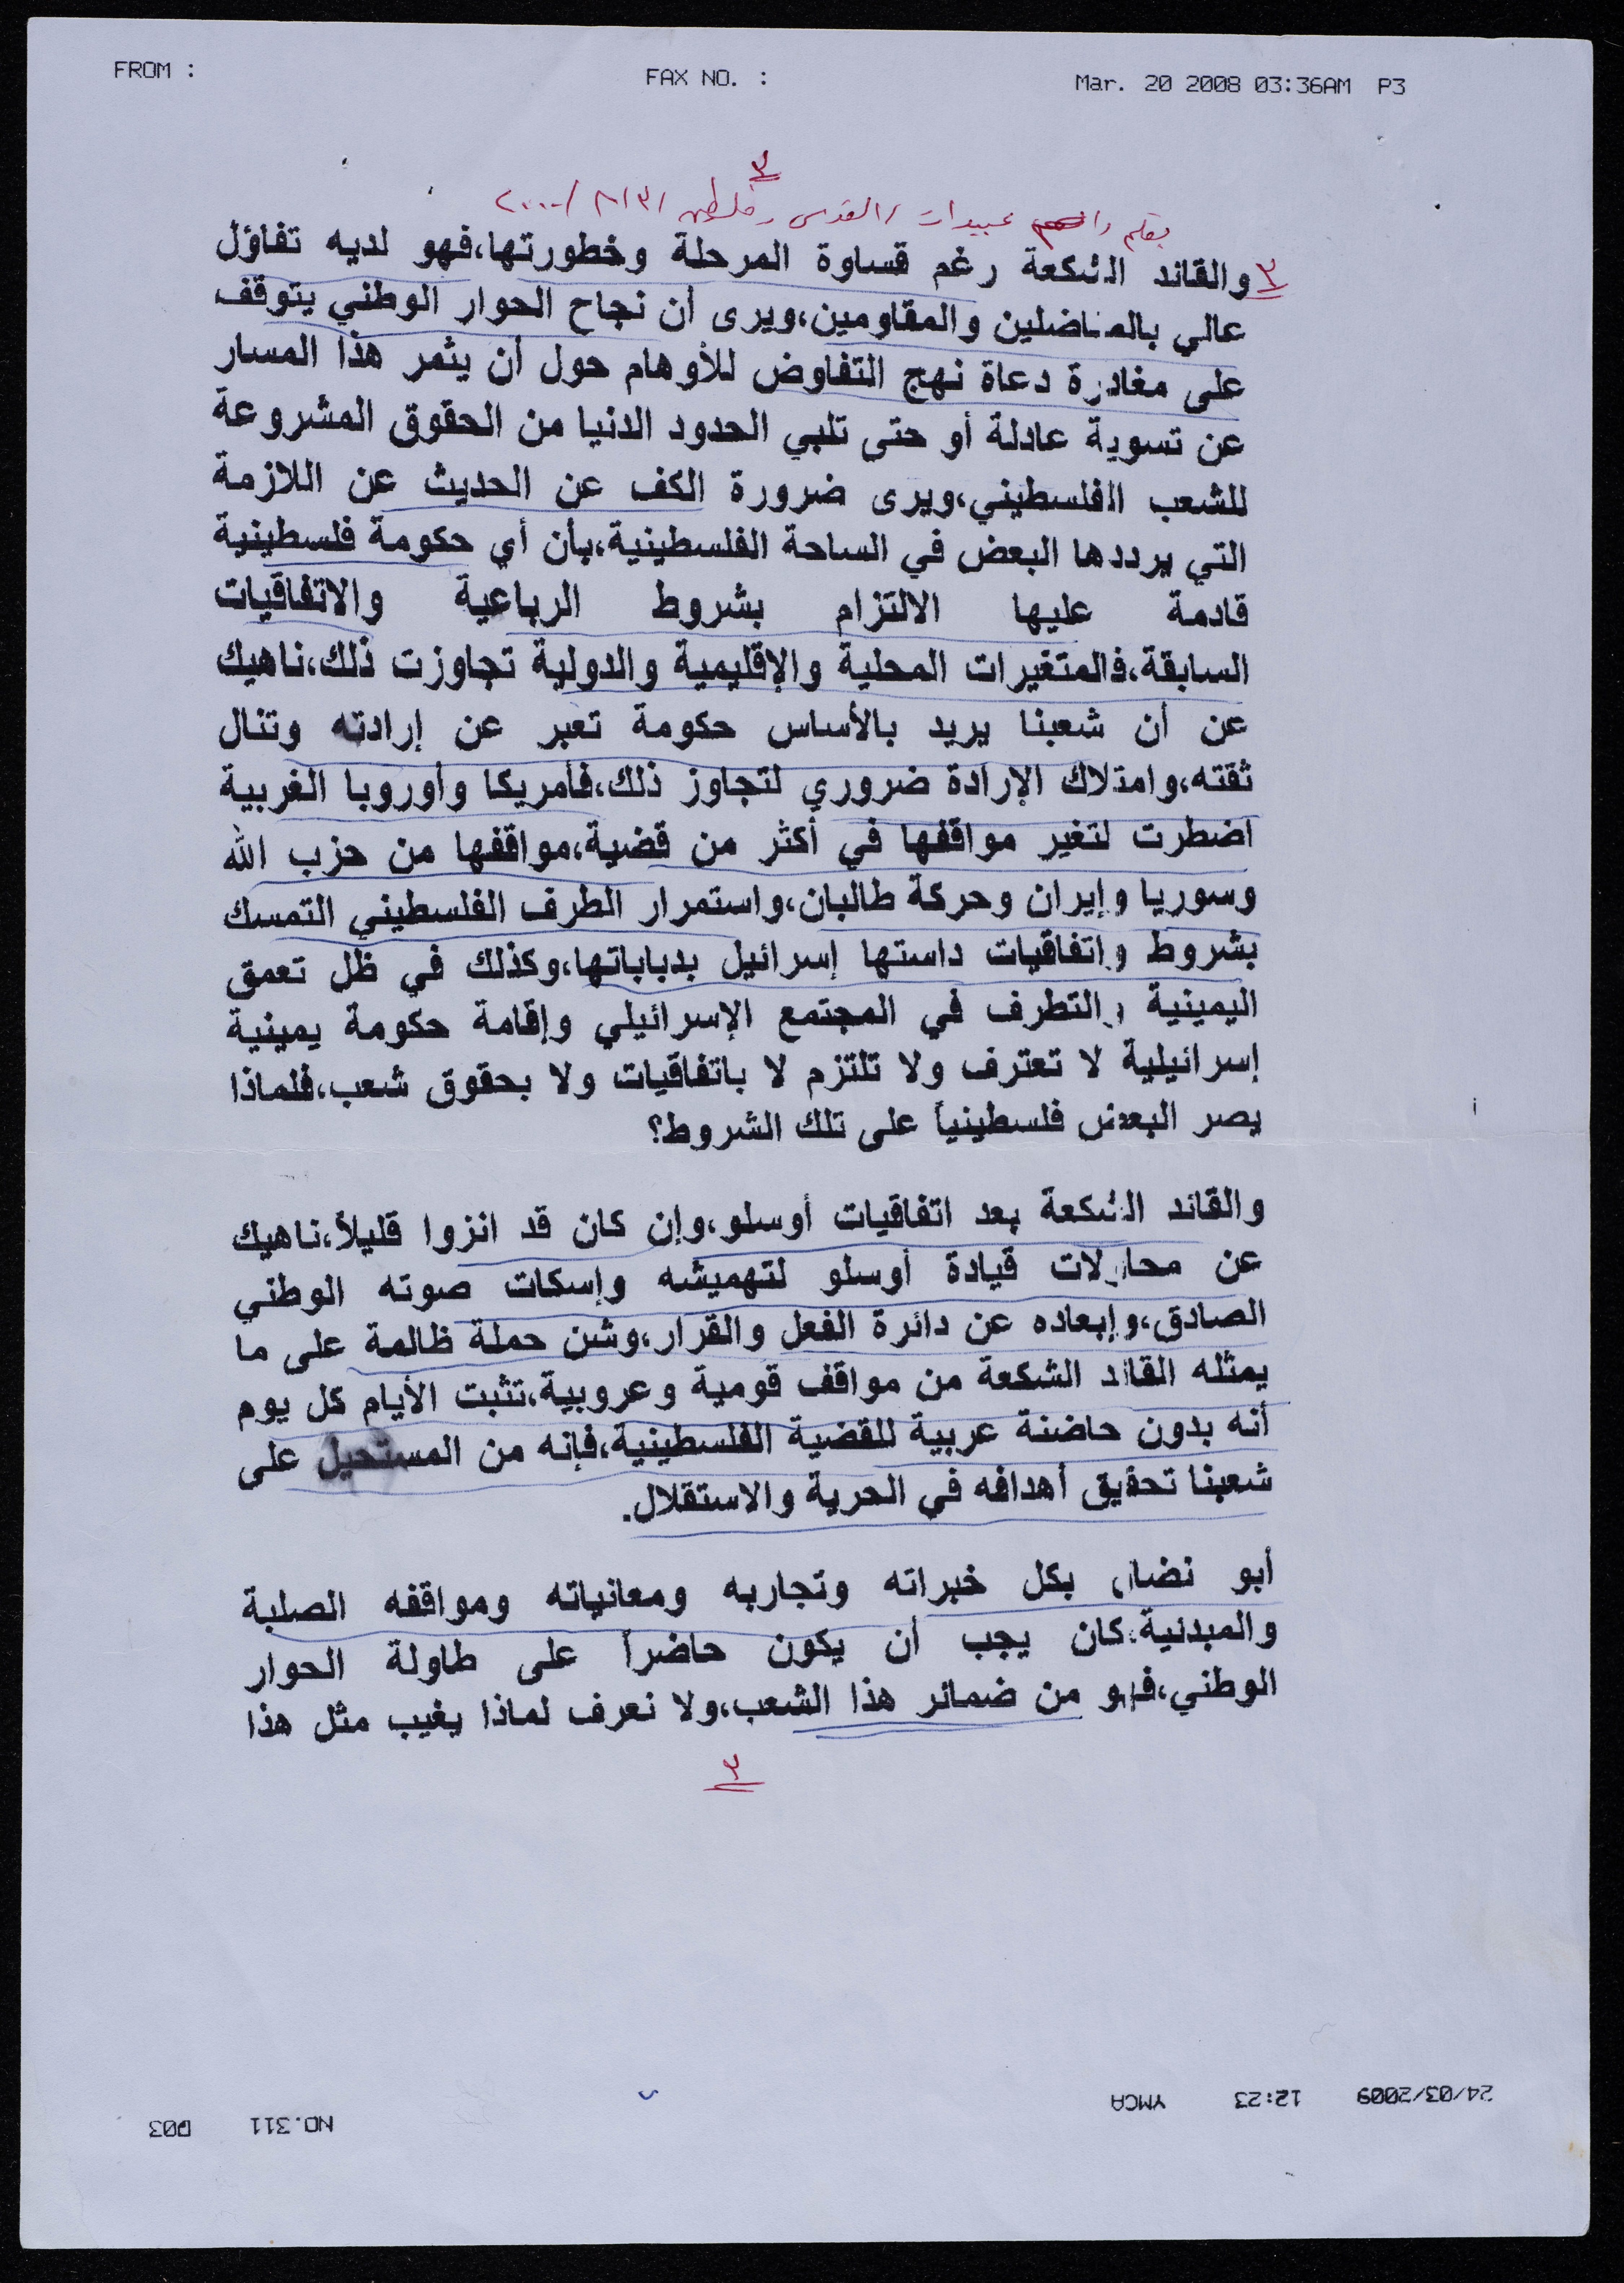 FROM :
FAX NO. :
Mar. 20 2008 03:36AM P3
٣
بقلم عبيدات / القدس
٣
والقائد الشكعة رغم قساوة المرحلة وخطورتها،فهو لديه تفاؤل
عالي بالمناضلين والمقاومين،ويرى أن نجاح الحوار الوطني يتوقف
على مغادرة دعاة نهج التفاوض للأوهام حول أن يثمر هذا المسار
عن تسوية عادلة أو حتى تلبي الحدود الدنيا من الحقوق المشروعة
للشعب الفلسطيني،ويرى ضرورة الكف عن الحديث عن اللازمة
التي يرددها البعض في الساحة الفلسطينية،بأن أي حكومة فلسطينية
قادمة عليها الالتزام بشروط الرباعية والاتفاقيات
السابقة،فالمتغيرات المحلية والإقليمية والدولية تجاوزت ذلك،ناهيك
عن أن شعبنا يريد بالأساس حكومة تعبر عن إرادته وتنال
ثقته،وامتلاك الإرادة ضروري لتجاوز ذلك،فأمريكا وأوروبا الغربية
اضطرت لتغير مواقفها في أكثر من قضية،مواقفها من حزب الله
وسوريا وإيران وحركة طالبان،واستمرار الطرف الفلسطيني التمسك
بشروط واتفاقيات داستها إسرائيل بدباباتها،وكذلك في ظل تعمق
اليمينية والتطرف في المجتمع الإسرائيلي وإقامة حكومة يمينية
إسرائيلية لا تعترف ولا تلتزم لا باتفاقيات ولا بحقوق شعب،فلماذا
يصر البعض فلسطينياً على تلك الشروط؟
والقائد الشكعة بعد اتفاقيات أوسلو،وإن كان قد انزوا قليلاً،ناهيك
عن محاولات قيادة أوسلو لتهميشه وإسكات صوته الوطني
الصادق،وإبعاده عن دائرة الفعل والقرار،وشن حملة ظالمة على ما
يمثله القائد الشكعة من مواقف قومية وعروبية،تثبت الأيام كل يوم
أنه بدون حاضنة عربية للقضية الفلسطينية،فإنه من المستحيل على
شعبنا تحقيق أهدافه في الحرية والاستقلال.
أبو نضال بكل خبراته وتجاربه ومعانياته ومواقفه الصلبة
والمبدئية،كان يجب أن يكون حاضراً على طاولة الحوار
الوطني،فهو من ضمائر هذا الشعب،ولا نعرف لماذا يغيب مثل هذا
٣
24/03/2009 12:23 YMCA
NO.311 P03